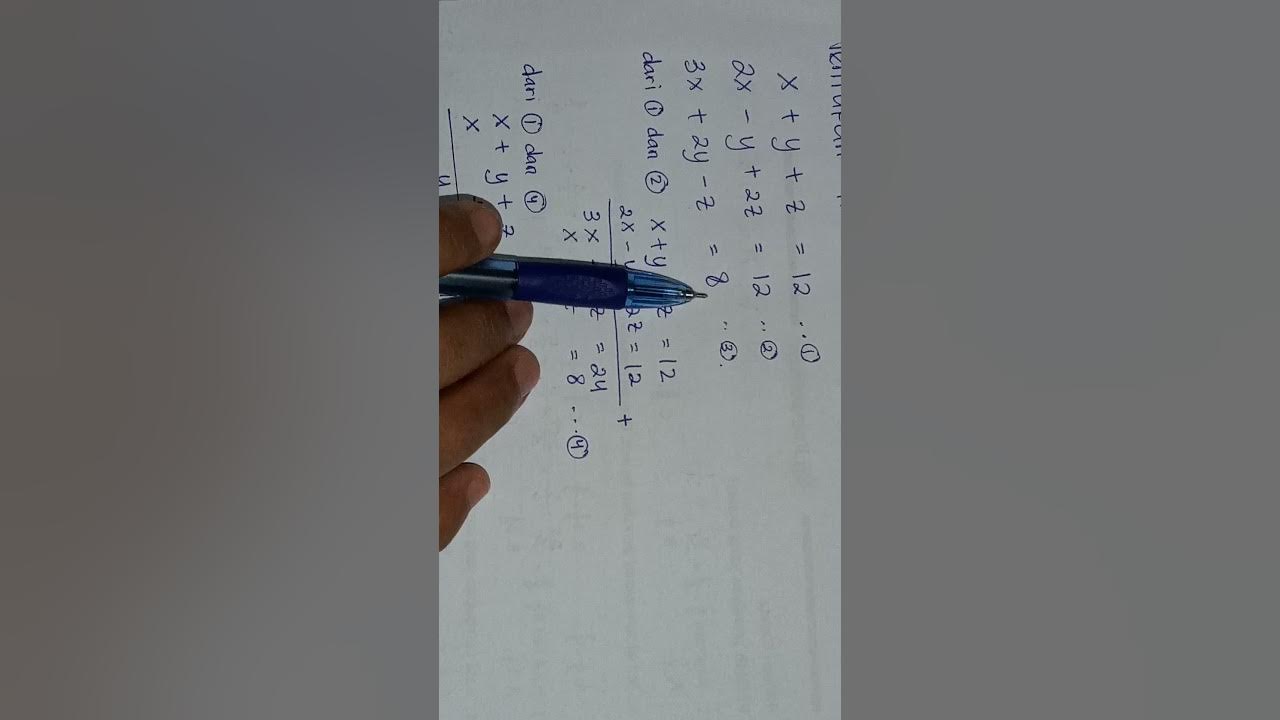 x + y + z = 12 ... ①
2x - y + 2z = 12 ... ②
3x + 2y - z = 8 ... ③.
dari ① dan ② x + y z = 12
2x - y 2z = 12 +
3x z = 24
x = 8 .... ④
dari ① dan ④
x + y + z
x
y